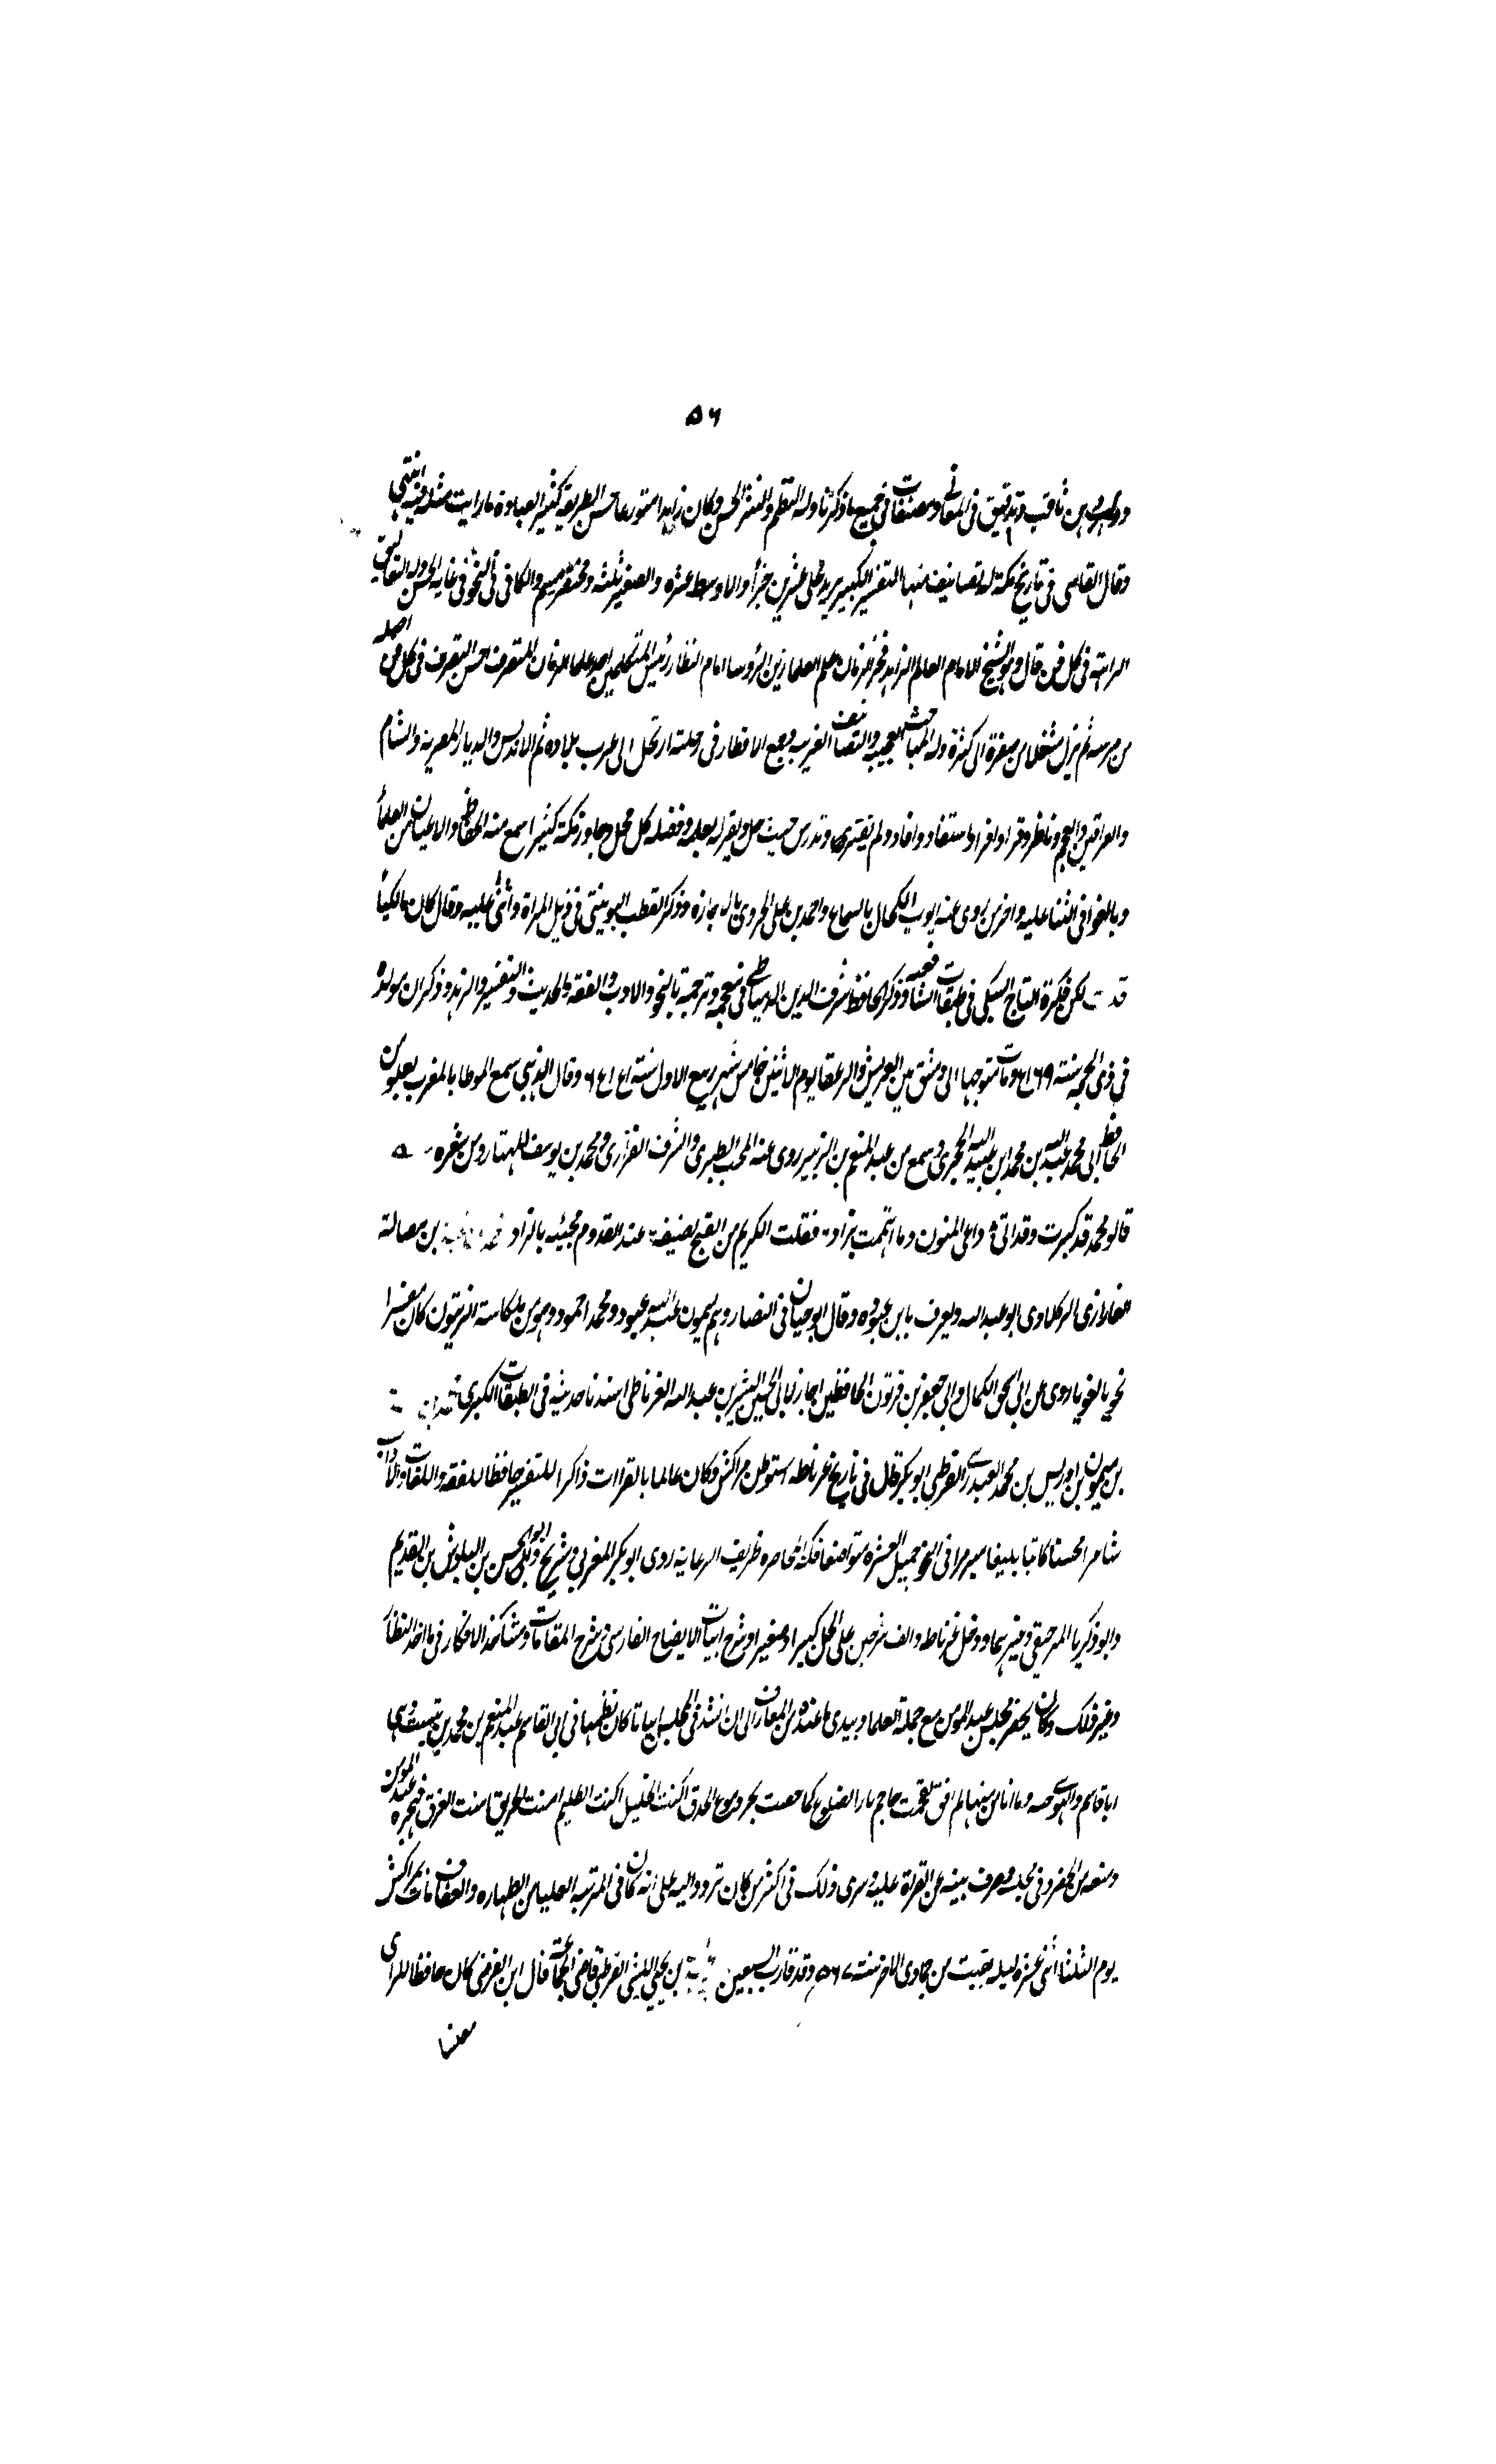 ٥٦
وذهن ثاقب وتدقيق في المعاني ومصنفات في جميع ما ذكرنا وله النظم والنثر الحسن وكان زاهدا متورعا حسن الطريقة كثير العبادة ما رايت مثله في فنه انتهى
وقال الفاسي في تاريخ مكة له تصانيف منها التفسير الكبير يزيد على عشرين جزأ والاوسط عشرة والصغير ثلثة ومختصر مسلم والكافي في النحو في غاية الحسن وله التعاليق
الرائقة في كل فن قال وهو الشيخ الامام العالم الزاهد فخر الزمان علم العلما زين الرؤسا امام النظار رئيس المتكلمين احد علما الزمان المتصرف احسن التصرف في كل فن اصله
من مرسيه لم يزل مشتغلا من صغره الى كبره وله المباحث العجيبه والتصانيف الغريبه وجمع الاقطار في رحلته ارتحل الى غرب بلاده ثم الاندلس والديار المصرية والشام
والعراقين والعجم وناظر وقرا واقرا واستفاد وافاد ولم يقترى وتدرس حيث حل ويقر له بعلمه وفضله كل محل وجاور بمكة كثيرا سمع منه الحفاظ والاعيان من العلمأ
وبالغوا في الثنا عليه واخر من روى عنه ايوب الكحال بالسماع واحمد بن على الجزري بالاجازه وذكر القطب اليونيني في ذيل المراة واثنى عليه وقال كان مالكيأ
قد لكن ذكره التاج السبكي في طبقات الشافعيه وذكر الحافظ شرف الدين الدمياطي في معجمه وترجمه بالنحو والادب والفقه والحديث والتفسير والزهد وذكر ان مولده
في ذي الحجه سنة ٥٦٩ ومات متوجها الى دمشق بين العريش والزعقا يوم الاثنين خامس شهر ربيع الاول سنة وقال الذهبي سمع الموطا بالمغرب بعلو من
الحافظ ابي محمد عبد الله بن محمد ابن عبيد الله الحجري وسمع من عبد المنعم بن الزبير روى عنه المحب الطبري والشرف الفزاري ومحمد بن يوسف المهتار ومن شعره
قالو محمد قد كبرت وقد اتى داعي المنون وما اهتممت بزاد فقلت الكريم من القبيح لضيفه عند القدوم مجيئه بالزاد بن مصالة
الفازازي الزكلاوى ابو عبد الله ويعرف بابن عبوده وقال ابو حيان في النضار وهم يسمون عبد الله عبود ومحمد احمود وهو من مكناسة الزيتون كان مفسرا
نحويا لغويا روى عن ابي اسحق الكمال وابي جعفر بن فرتون الحافظين اجاز لنا ابي الحسين اليسير بن عبد الله الغرناطي اسندنا حديثه في الطبقات الكبرى
بن ميمون بن ادريس بن محمد العبدري القرطبي ابو بكر قال في تاريخ غرناطه استوطن مراكش وكان عالما بالقراات ذاكرا للتفسير حافظا للفقه واللغات والاداب
شاعرا محسنا كاتبا بليغا مبرزا في النحو جميل العشره متواضعا فكه المحاضره ظريف الدعابة روى ابو بكر المغربي وشريح وابو الحسن بن الباذش بن القديم
وابو ذكريا المرجيقي وغيرهما ودخل غرناطه والف شرحين على الجمل كبيرا وصغيرا وشرح ابيات الايضاح الفارسي وشرح المقامات ومشاكهه الافكار في مااخذ النظأ
وغير ذلك وكان يحضر مجلس عبد المومن مع جملة العلما ويبدى ما عنده من المعارف الى ان انشد في المجلس ابياتا كان نظمها في ابي القاسم عبد المنعم بن محمد بن تيست وهى
ابا قاسم والهوى جنه وما انا من مسها لم افق تقحمت جاحم نار الضلوع كما خضت بحر دموع الحدق اكنت الخليل اكنت الكليم امنت الحريق امنت الغرق فهجره عبد المومن
ومنعه من الحضور في مجلسه وصرف بنيه عن القراة عليه وسرى ذلك في اكثر من كان تردد اليه على انه كان في المرتبة العليا من الطهاره والعفاف مات بمراكش
يوم الثلثا اثنى عشرة ليله بقيت من جمادى الاخر سنة ٥٦٧ وقد قارب السبعين بن يحيى الليثي القرطبي قاضي الجماعة قال ابن الفرضي كان حافظا للراى
معتنيا